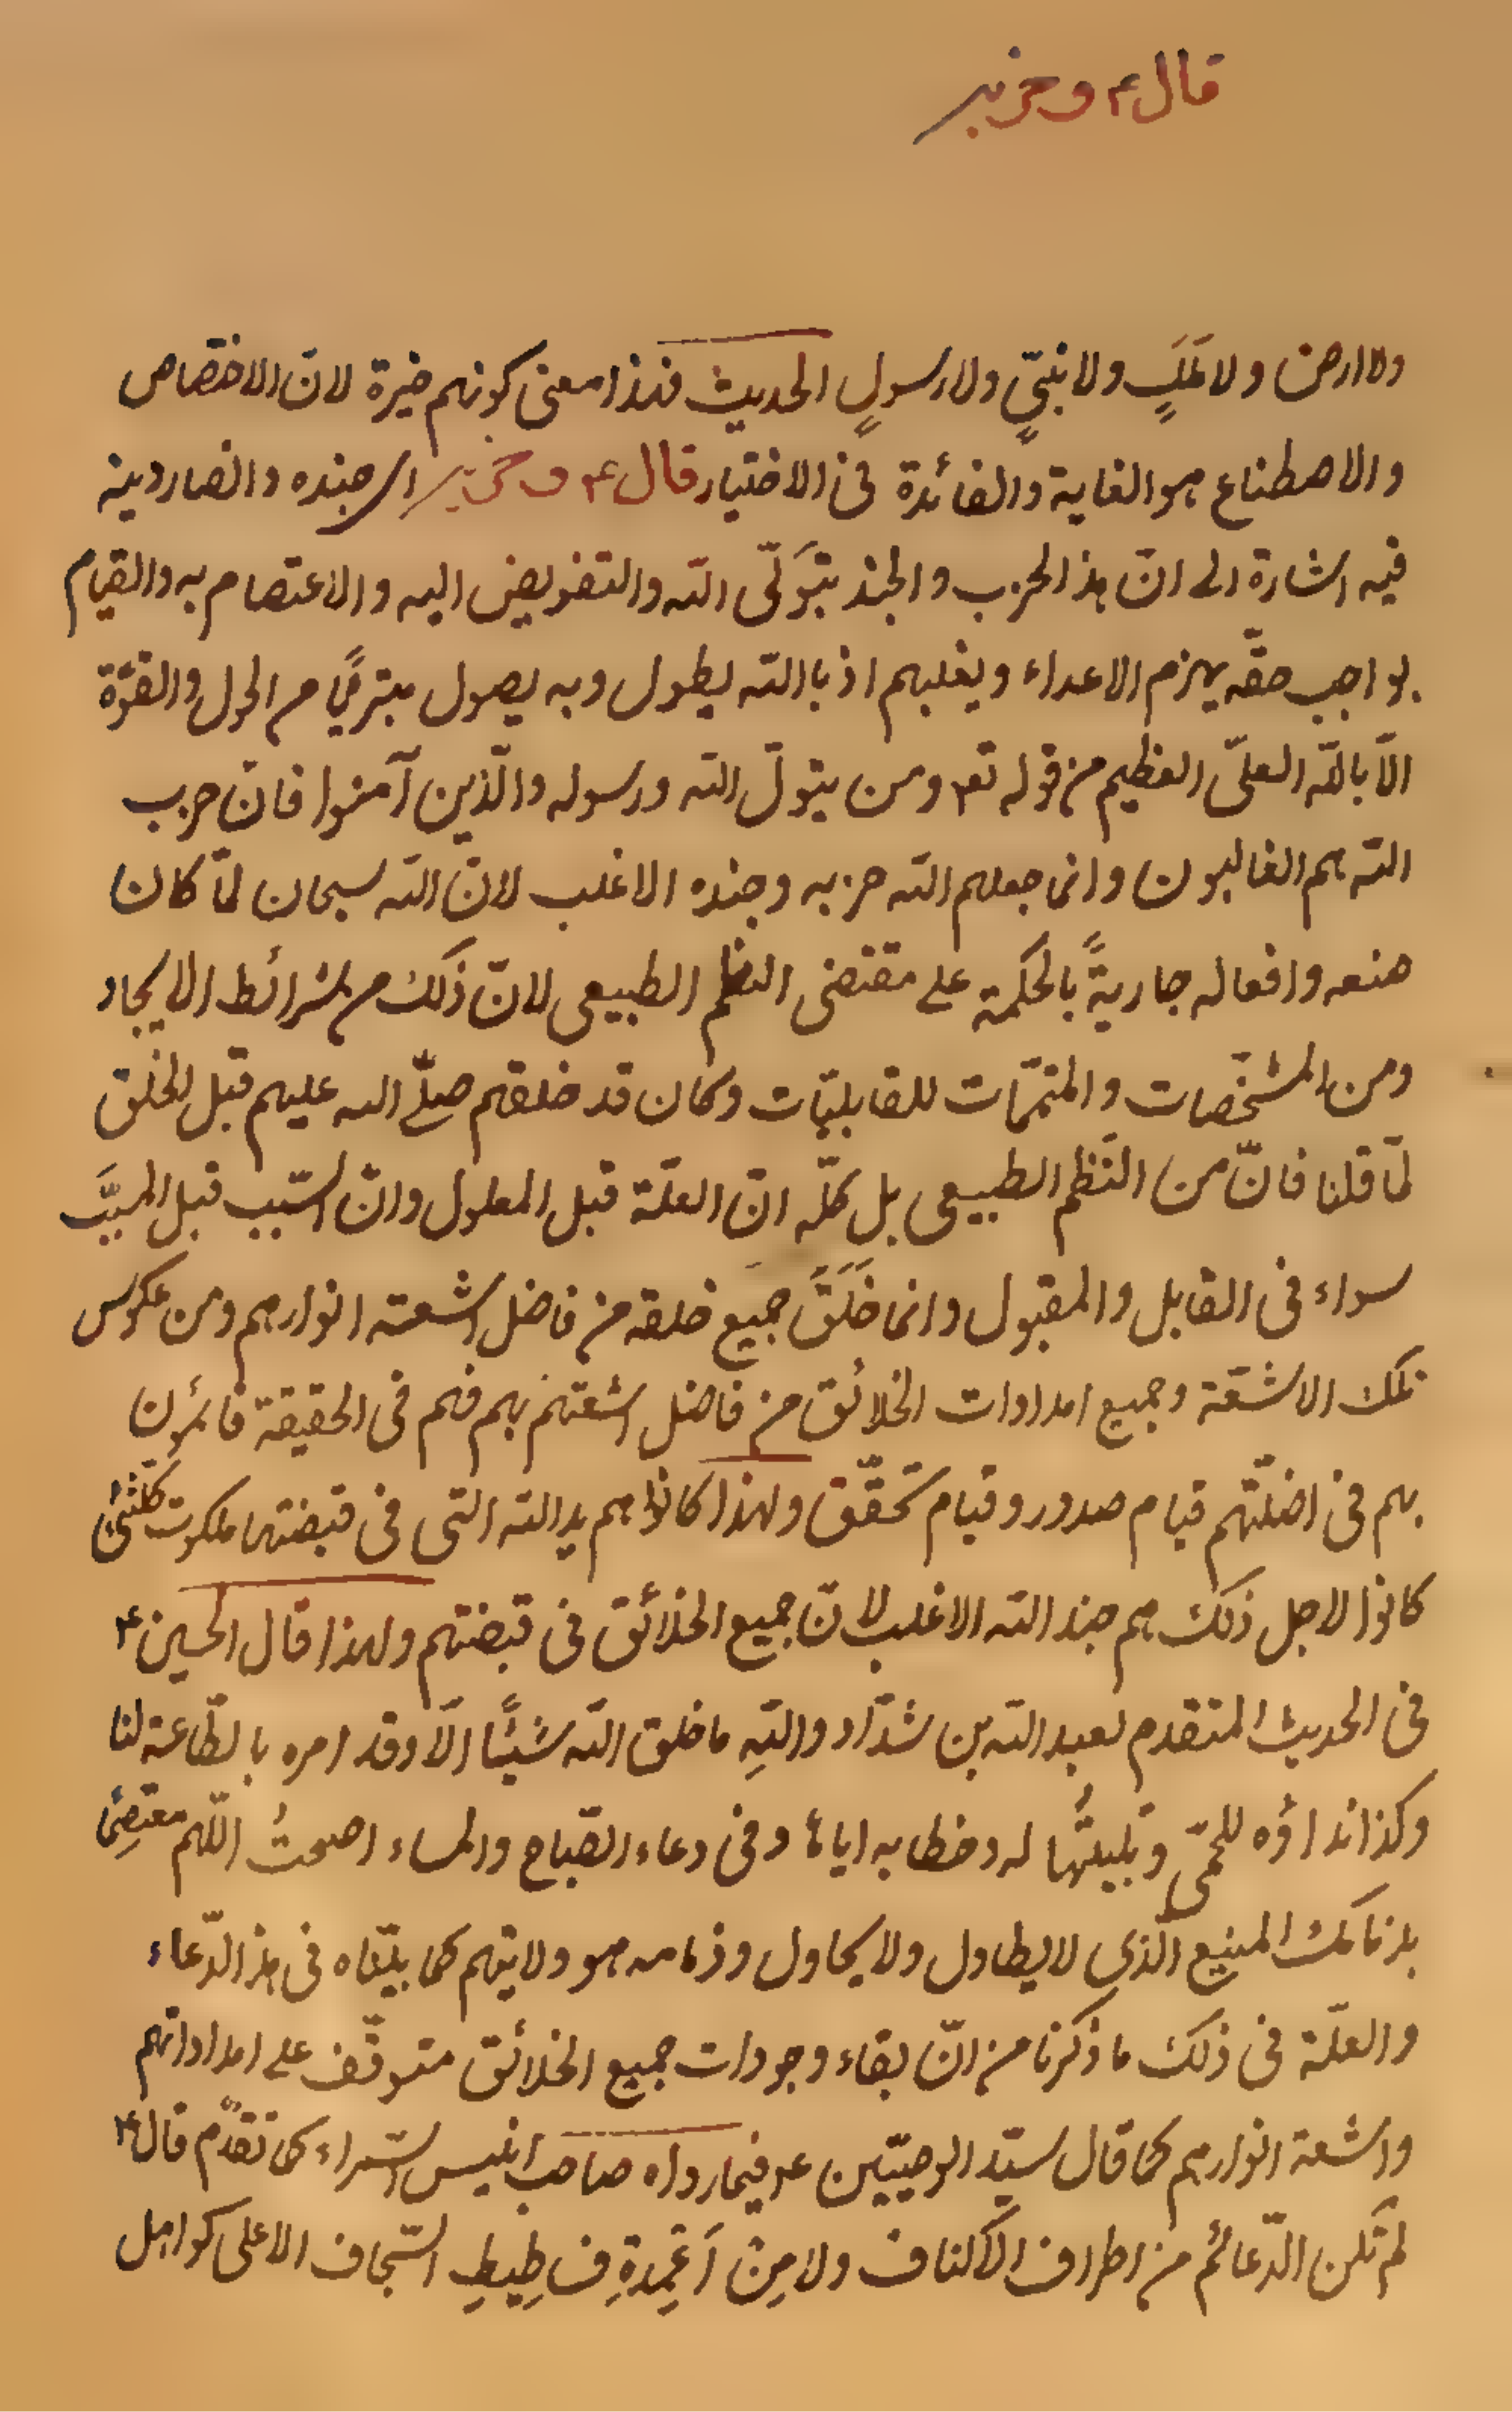 قال ع وحزبه
ولا ارض ولا مَلَكٍ ولا نبيٍّ ولا رسولٍ الحديث فهذا معنى كونهم خيرة لانّ الاختصاص
والاصطناع هو الغاية والفائدة فى الاختيار قال ع وحزبه اى جنده وانصار دينه
فيه اشارة الى انّ هذا الحزب والجند بتَولّى الله والتفويض اليه والاعتصام به والقيام
بواجب حقّه يهزم الاعداء ويغلبهم اذ بالله يطول وبه يصول متبرّياً من الحول والقوّة
الّا بالله العلىّ العظيم من قوله تع ومن يتولّ الله ورسوله والّذين آمنوا فانّ حزب
الله هم الغالبون وانما جعلهم الله حزبه وجنده الاغلب لانّ الله سبحان لمّا كان
صنعه وافعاله جاريةً بالحكمة على مقتضى النظم الطبيعى لانّ ذلك من شرائط الايجاد
ومن المشخّصات والمتمّمات للقابليّات وكان قد خلقهم صلّى الله عليهم قبل الخلق
لمّا قلنا فانّ من النَّظم الطبيعى بل كلّه انّ العلّة قبل المعلول وانّ السّبب قبل المسبَّب
سواء فى القابل والمقبول وانما خَلَقَ جميع خلقه من فاضل اشعة انوارهم ومن عكوس
تلك الاشعّة وجميع امدادات الخلائق من فاضل اشعتهم بهم فهم فى الحقيقة قائمون
بهم فى اضلّتهم قيام صدور وقيام تحقّق ولهذا كانوا هم يد الله التى فى قبضتها ملكوت كلشئ
كانوا لاجل ذلك هم جند الله الاغلب لانّ جميع الخلائق فى قبضتهم ولهذا قال الحسين ع
فى الحديث المتقدم لعبد الله بن شدّاد واللهِ ما خلق الله شيئًا الّا وقد امره بالطّاعة لنا
وكذا نداؤه للحمّى وتلبيتُها له وخطابه اياها وفى دعاء الصّباح والمساء اصبحتُ اللّهم معتصِمًا
بذمامك المنيع الّذى لا يطاول ولا يحاول وذمامه هو ولايتهم كما بيّنّاه فى هذ الدّعاء
والعلّة فى ذلك ما ذكرنا من انّ بقاء وجودات جميع الخلائق متوقّف على امداداتهم
واشعة انوارهم كما قال سيّد الوصيّين ع فيما رواه صاحب انيس السّمراء كما تقدّم قال ع
لم تكن الدّعائم من اطراف الاكناف ولا مِن اَعْمِدةِ فساطِيطِ السّجاف الا على كواهل